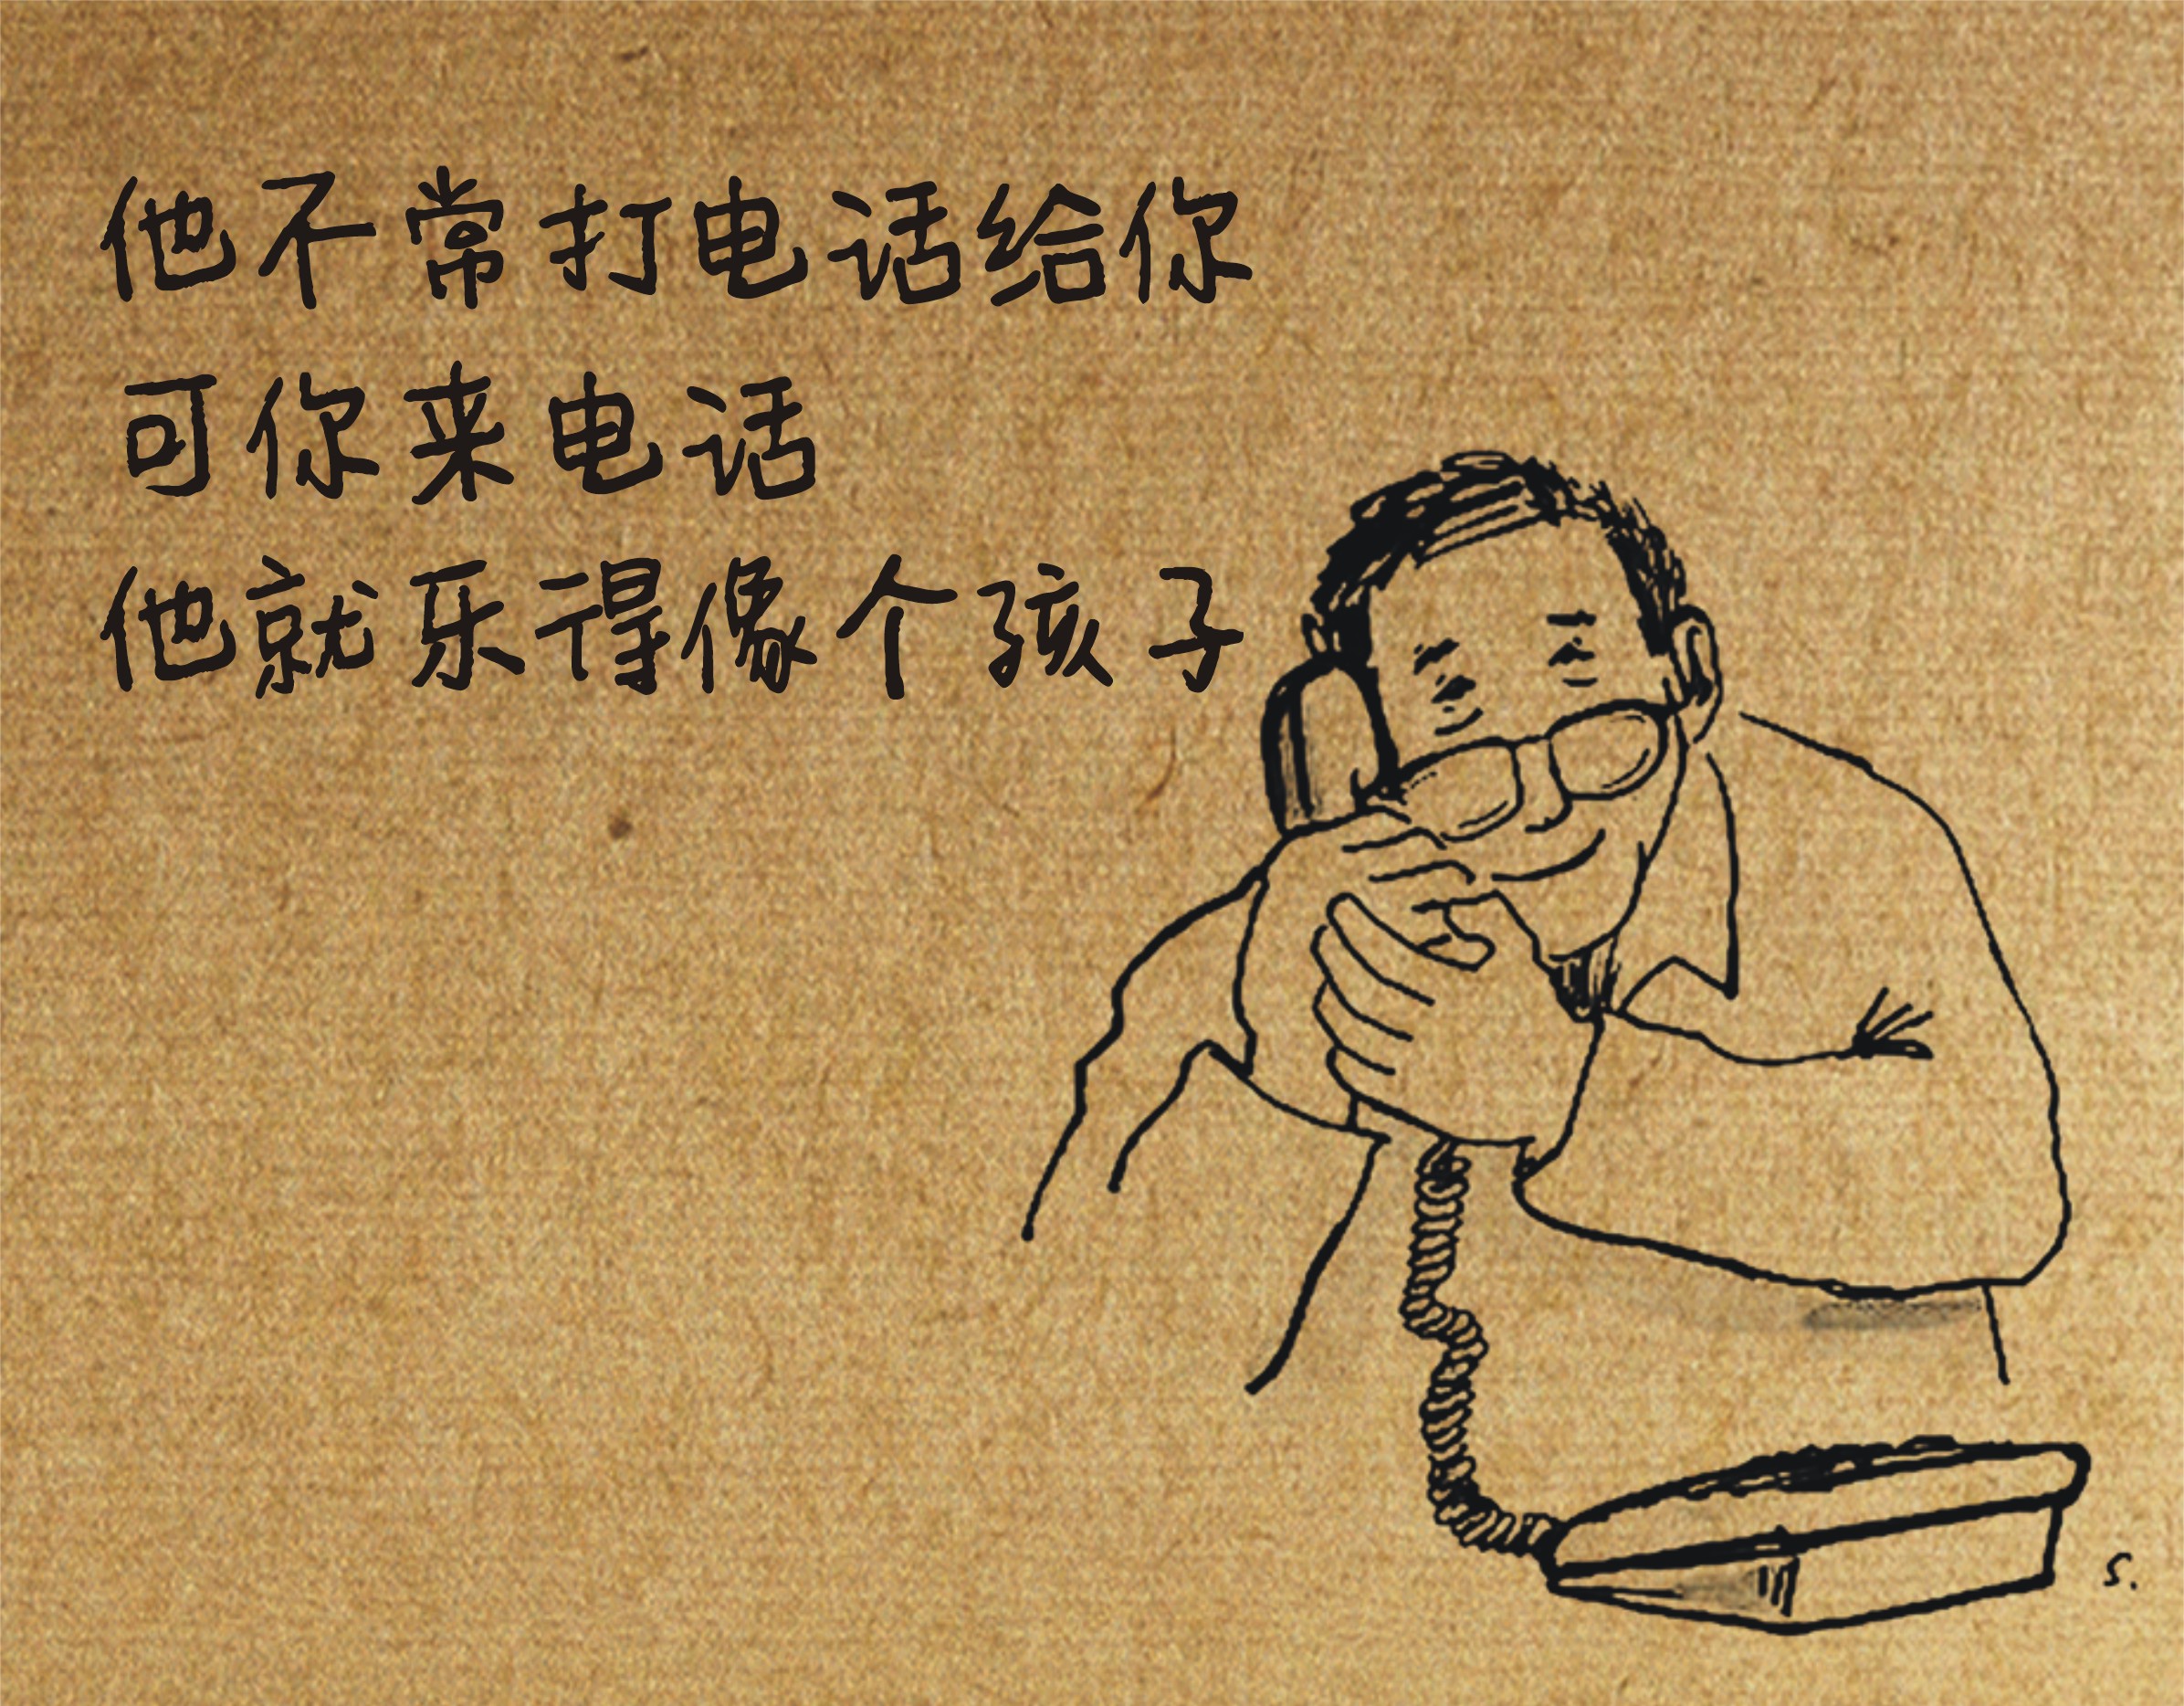 他不常打电话给你
可你来电话
他就乐得像个孩子
s.